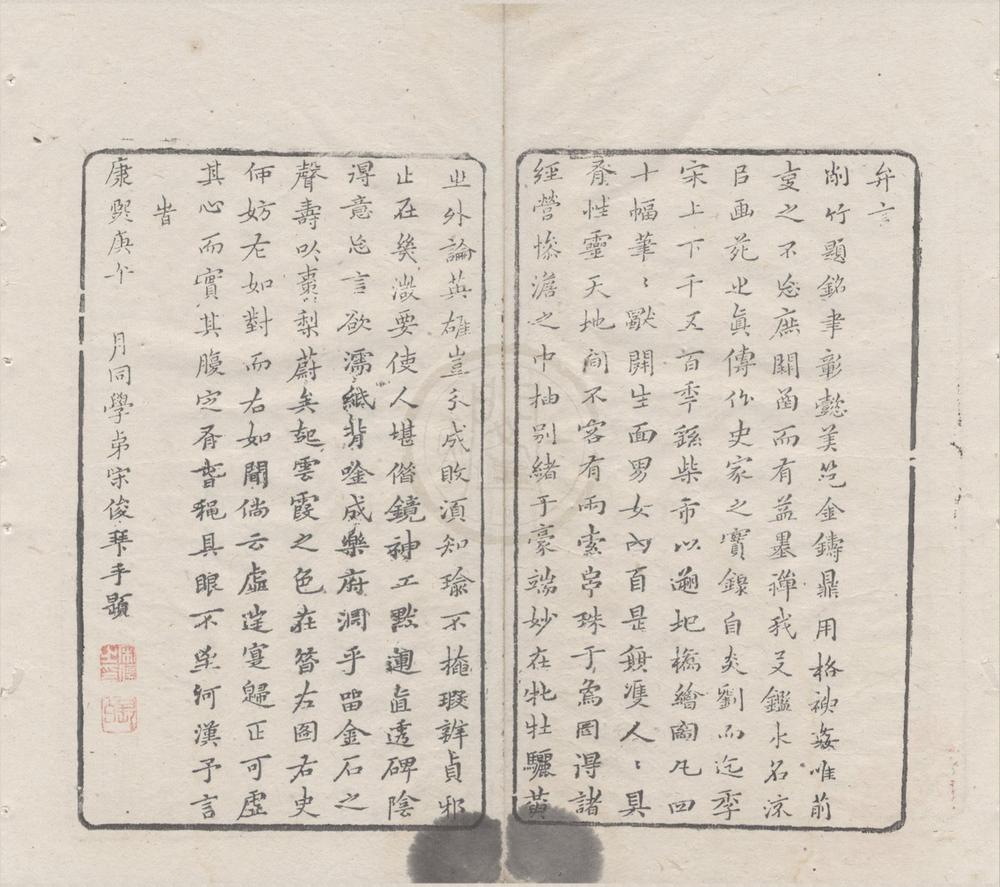 弁言
削竹顯銘聿彰懿美笵金鑄鼎用格神姦唯前
叓之不忘庶開函而有益墨禪我又鑑水名流
㠯画苑之眞傳作史家之寶錄自炎劉而迄季
宋上下千又百秊繇柴市以遡圯橋繪圖凡四
十幅筆〻獸開生面男女內百是無雙人〻具
性靈天地间不客有兩索㠯珠于爲圖得諸
經營慘澹之中抽别緒于豪端妙在牝牡驪黃
㞢外論英雄豈于成敗湏知瑜不掩瑕辨貞邪
止在幾微要使人堪借鏡神工默運直透碑陰
得意忘言欲濡紙背唫成樂府淵乎畱金石之
聲壽以棗梨蔚矣起雲霞之色在簪左圖右史
何妨左如對而右如聞倘云虛逹寔歸正可虛
其心而實其腹定有昔䋲具眼不至何漢予言
者
康熙庚午　月同學弟宋俊拜手題